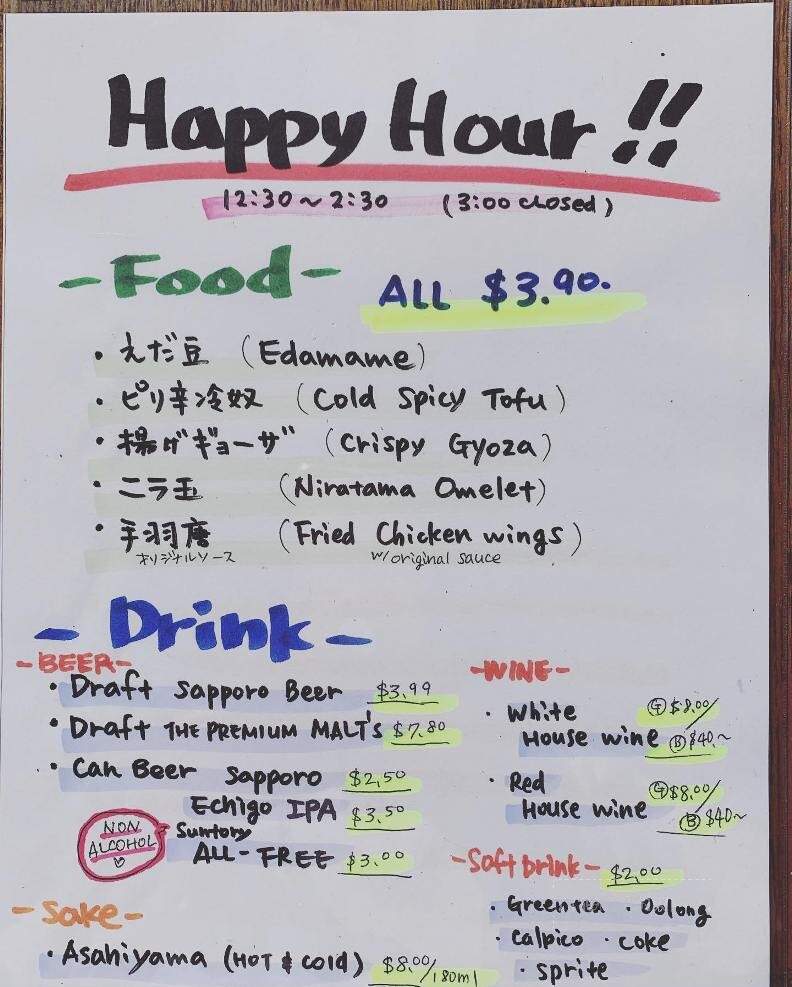 Happy Hour !!
12:30 ~ 2:30 (3:00 closed)
- Food - ALL $3.90.
・えだ豆 (Edamame)
・ピリ辛冷奴 (Cold Spicy Tofu)
・揚げギョーザ (Crispy Gyoza)
・ニラ玉 (Niratama Omelet)
・手羽唐 (Fried Chicken wings)
オリジナルソース w/original sauce
- Drink -
-BEER-
・Draft Sapporo Beer $3.99
・Draft THE PREMIUM MALT's $7.80
・Can Beer Sapporo $2.50
Echigo IPA $3.50
NON ALCOHOL ♡
Suntory
ALL-FREE $3.00
-Sake-
・Asahiyama (HOT & Cold) $8.00/180ml
-WINE-
・White Ⓖ $8.00/
House wine Ⓑ $40.~
・Red Ⓖ $8.00/
House wine Ⓑ $40~
-Soft Drink- $2.00
・Green tea ・Oolong
・Calpico ・coke
・sprite